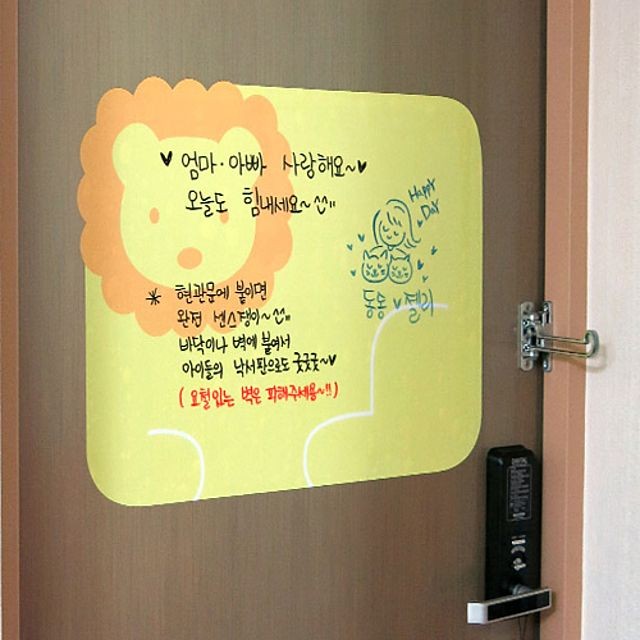 ♥ 엄마·아빠 사랑해요~♥
오늘도 힘내세요~^^"
Happy
Day
동동 ♥ 젤리
* 현관문에 붙이면
완전 센스쟁이~^^"
바닥이나 벽에 붙여서
아이들의 낙서판으로도 굿굿굿~♥
(요철있는 벽은 피해주세용~!!)